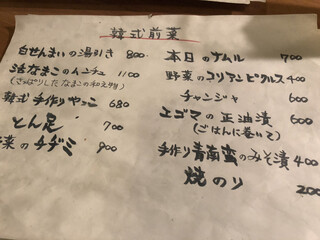 韓式前菜
白ぜんまいの湯引き 800
活なまこのムンチュ 1100
(さっぱりしたなまこの和え物)
韓式手作りやっこ 680
とん足 700
菜のチヂミ 900
本日のナムル 700
野菜のコリアンピクルス 400
チャンジャ 600
エゴマの正油漬 600
(ごはんに巻いて)
手作り青南蛮のみそ漬 400
焼のり 200